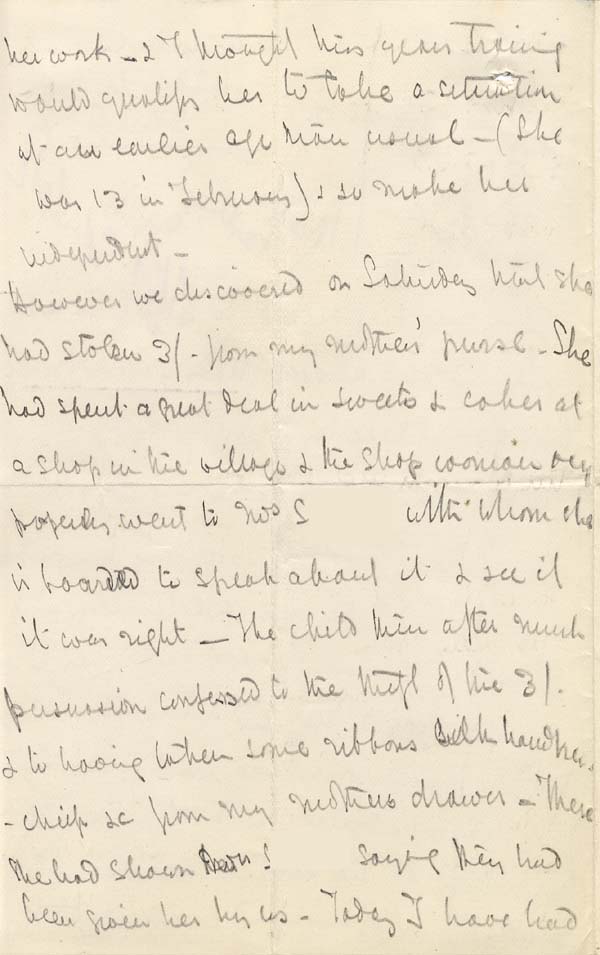 her work - & I thought this years training
would qualify her to take a situation
at an earlier age than usual - (She
was 13 in February) & so make her
independent -
However we discovered on Saturday that she
had stolen 3/- from my mother's purse - She
had spent a great deal in sweets & cakes at
a shop in the village & the shop woman very
properly went to Mrs S with whom she
is boarded to speak about it & see if
it was right - The child then after much
persuasion confessed to the theft of the 3/-
& to having taken some ribbons silk handker
- chief &c from my mothers drawer - These
she had shown Mrs S saying they had
been given her by us - Today I have had